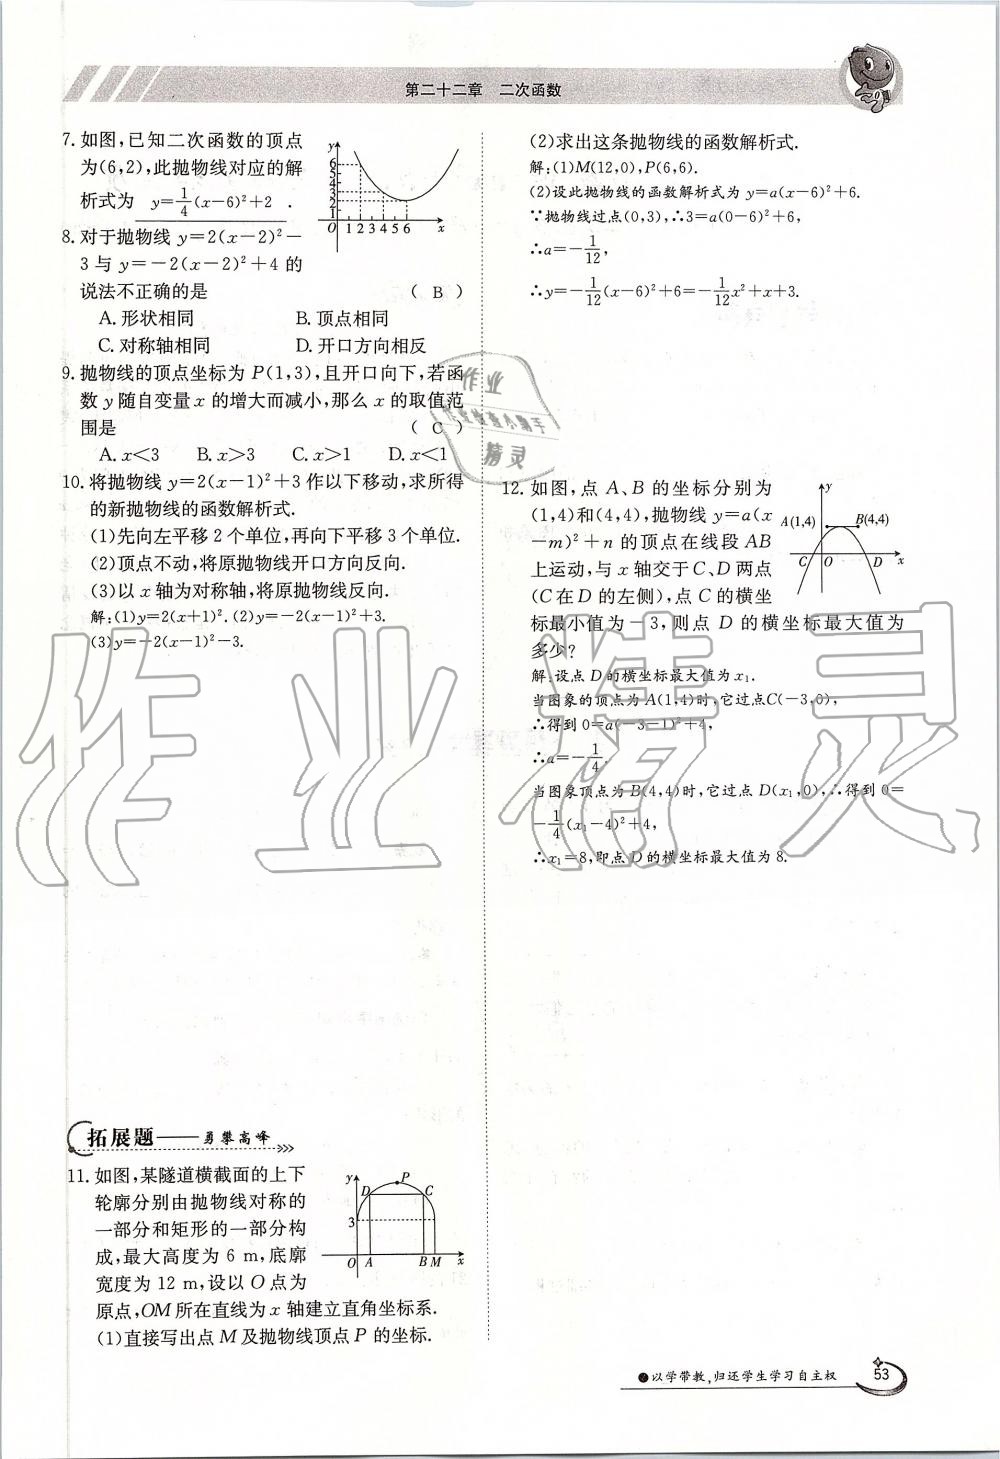 第二十二章 二次函数
7. 如图,已知二次函数的顶点
为(6,2),此抛物线对应的解
析式为 y=\frac{1}{4}(x-6)²+2 .
y
6
5
4
3
2
1
O 1 2 3 4 5 6 x
8. 对于抛物线 y=2(x-2)²-
3与 y=-2(x-2)²+4 的
说法不正确的是 ( B )
A. 形状相同 B. 顶点相同
C. 对称轴相同 D. 开口方向相反
9. 抛物线的顶点坐标为 P(1,3),且开口向下,若函
数 y 随自变量 x 的增大而减小,那么 x 的取值范
围是 ( C )
A. x<3 B. x>3 C. x>1 D. x<1
10. 将抛物线 y=2(x-1)²+3 作以下移动,求所得
的新抛物线的函数解析式.
(1)先向左平移 2 个单位,再向下平移 3 个单位.
(2)顶点不动,将原抛物线开口方向反向.
(3)以 x 轴为对称轴,将原抛物线反向.
解:(1)y=2(x+1)². (2)y=-2(x-1)²+3.
(3)y=-2(x-1)²-3.
拓展题——勇攀高峰
11. 如图,某隧道横截面的上下
轮廓分别由抛物线对称的
一部分和矩形的一部分构
成,最大高度为 6 m,底廓
宽度为 12 m,设以 O 点为
原点,OM所在直线为 x 轴建立直角坐标系.
(1)直接写出点 M 及抛物线顶点 P 的坐标.
y
P
D C
3
O A B M x
(2)求出这条抛物线的函数解析式.
解:(1)M(12,0),P(6,6).
(2)设此抛物线的函数解析式为 y=a(x-6)²+6.
∵抛物线过点(0,3),∴3=a(0-6)²+6,
∴a=-\frac{1}{12},
∴y=-\frac{1}{12}(x-6)²+6=-\frac{1}{12}x²+x+3.
12. 如图,点 A、B 的坐标分别为
(1,4)和(4,4),抛物线 y=a(x
-m)²+n 的顶点在线段 AB
上运动,与 x 轴交于 C、D 两点
(C在 D 的左侧),点 C 的横坐
标最小值为-3,则点 D 的横坐标最大值为
多少?
y
A(1,4) B(4,4)
C O D x
解:设点 D 的横坐标最大值为 x₁.
当图象的顶点为 A(1,4)时,它过点C(-3,0),
∴得到 0=a(-3-1)²+4,
∴a=-\frac{1}{4}.
当图象顶点为 B(4,4)时,它过点 D(x₁,0),∴得到 0=
-\frac{1}{4}(x₁-4)²+4,
∴x₁=8,即点 D 的横坐标最大值为 8.
作业
作业检查小帮手
精灵
作业精灵
以学带教,归还学生学习自主权
53